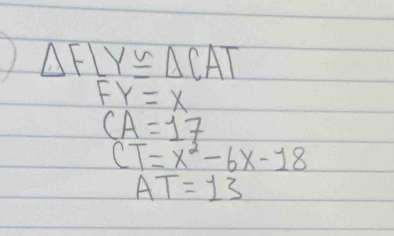 △FLY ≅ △CAT
FY = x
CA = 17
CT = x² - 6x - 18
AT = 13